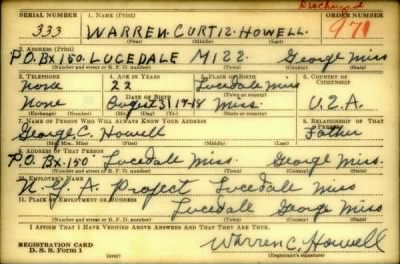 Discharged
SERIAL NUMBER 1. NAME (Print) ORDER NUMBER
333 WARREN CURTIS HOWELL 971
(First) (Middle) (Last)
2. ADDRESS (Print)
P.O. BX 150. LUCEDALE MISS George Miss
(Number and street or R. F. D. number) (Town) (County) (State)
3. TELEPHONE 4. AGE IN YEARS 5. PLACE OF BIRTH 6. COUNTRY OF CITIZENSHIP
None 22 Lucedale Miss
(Town or county)
DATE OF BIRTH
None August 31 1918 Miss. U.S.A.
(Mo.) (Day) (Yr.) (State or country)
7. NAME OF PERSON WHO WILL ALWAYS KNOW YOUR ADDRESS 8. RELATIONSHIP OF THAT PERSON
George C. Howell Father
(Mr., Mrs., Miss) (First) (Middle) (Last)
9. ADDRESS OF THAT PERSON
P.O. BX. 150 Lucedale Miss. George Miss.
(Number and street or R. F. D. number) (Town) (County) (State)
10. EMPLOYER'S NAME
N.Y.A. Project Lucedale Miss
11. PLACE OF EMPLOYMENT OR BUSINESS
Lucedale George Miss
(Number and street or R. F. D. number) (Town) (County) (State)
I AFFIRM THAT I HAVE VERIFIED ABOVE ANSWERS AND THAT THEY ARE TRUE.
Warren C. Howell
REGISTRATION CARD
D. S. S. Form 1 (Registrant's signature)